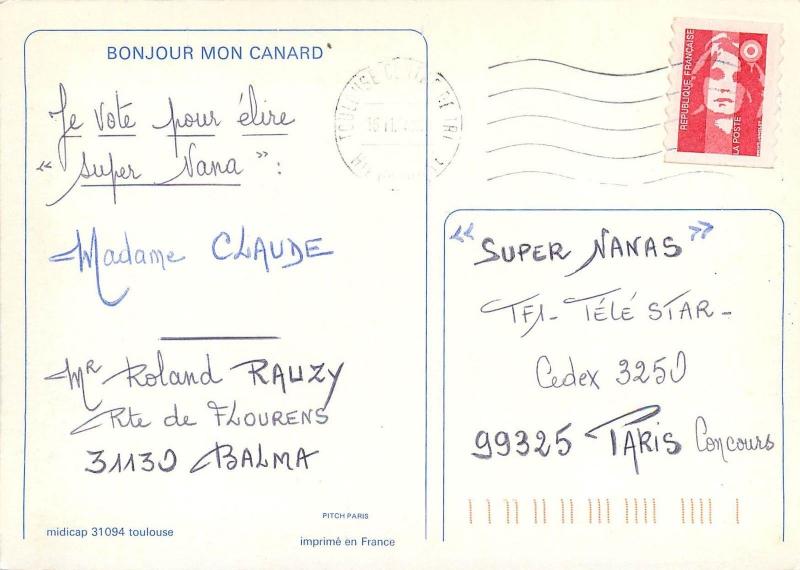 BONJOUR MON CANARD
Je vote pour élire
“ super Nana ” :
Madame CLAUDE
Mr Roland RAUZY
Rte de FLOURENS
31130 BALMA
PITCH PARIS
midicap 31094 toulouse
imprimé en France
TOULOUSE
RÉPUBLIQUE FRANÇAISE
LA POSTE
“ SUPER NANAS ”
TF1 - TÉLÉ STAR -
Cedex 3250
99325 PARIS Concours